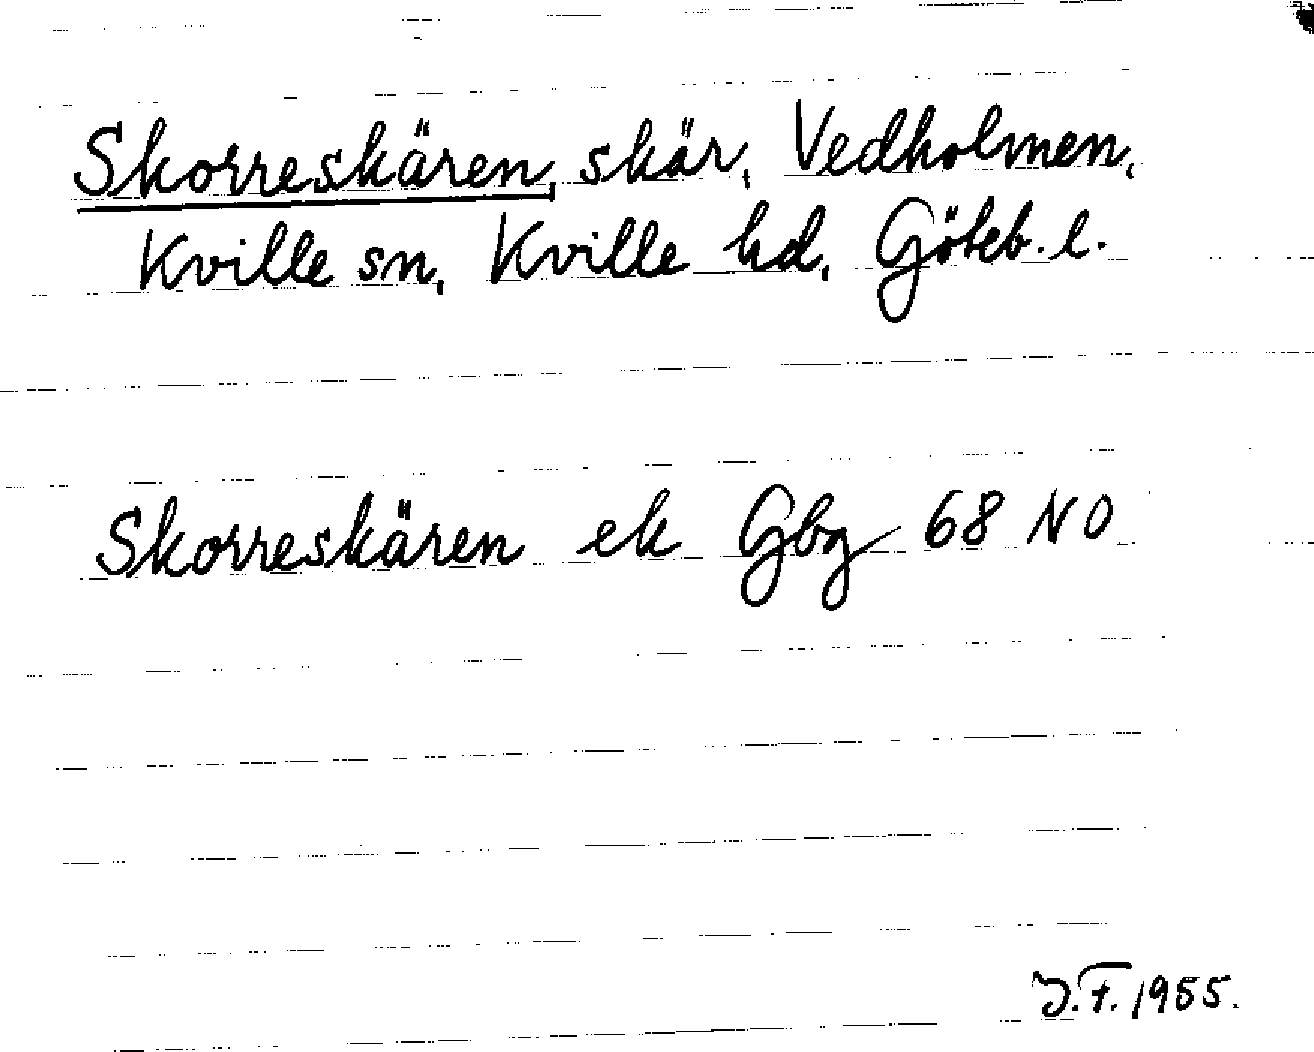 Skorreskären, skär, Vedholmen,
Kville sn, Kville hd, Göteb. l.
Skorreskären ek Gbg 68 NO
J.F. 1955.